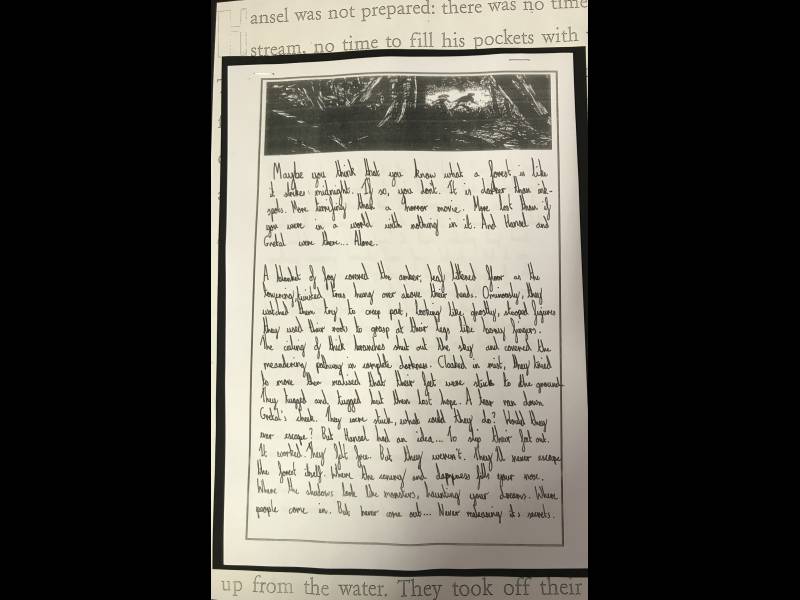 ansel was not prepared: there was no time
stream, no time to fill his pockets with
Maybe you think that you know what a forest is like
it strikes midnight. If so, you don't. It is darker than ink-
spots. More terrifying than a horror movie. More lost than if
you were in a world with nothing in it. And Hansel and
Gretal were there... Alone.
A blanket of fog covered the amber, leaf littered floor as the
towering, twisted trees hung over above their heads. Ominously, they
watched them try to creep past, looking like ghostly, stooped figures
they used their roots to grasp at their legs like boney fingers.
The ceiling of thick branches shut out the sky and covered the
meandering pathway in complete darkness. Cloaked in mist, they tried
to move then realised that their feet were stuck to the ground
They tugged and tugged but then lost hope. A tear ran down
Gretal's cheek. They were stuck, what could they do? Would they
ever escape? But Hansel had an idea... To slip their feet out.
It worked. They felt free. But they weren't. They'll never escape
the forest itself. Where the and dampness fills your nose.
Where the shadows look like monsters, haunting your dreams. Where
people come in. But never come out... Never releasing its secrets.
up from the water. They took off their